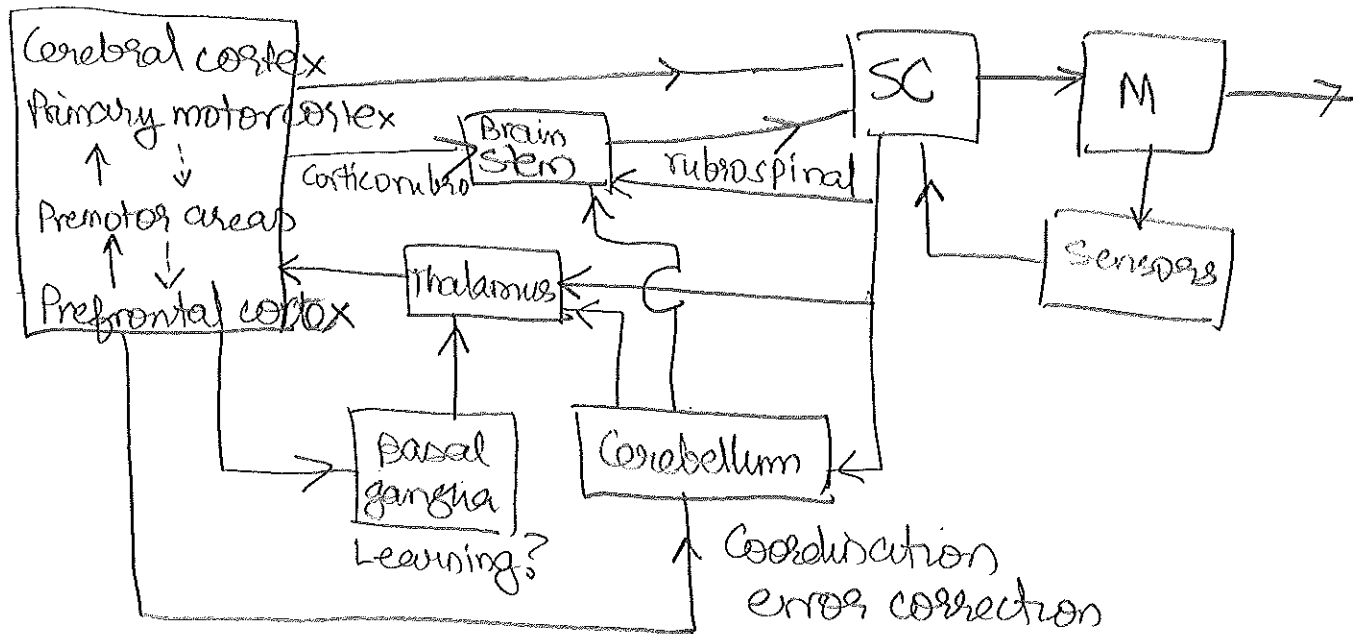 Cerebral cortex
Primary motor cortex
Premotor areas
Prefrontal cortex
Corticorubro
Brain
Stem
rubrospinal
SC
M
Sensors
Thalamus
Basal
ganglia
Learning?
Cerebellum
Coordination
error correction